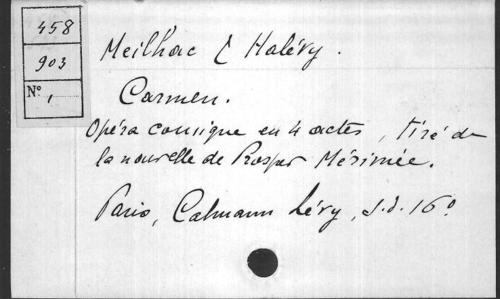 458
903
N° 1
Meilhac & Halévy.
Carmen.
Opéra comique en 4 actes, tiré de
la nouvelle de Prosper Mérimée.
Paris, Calmann Lévy, s.d. 16°